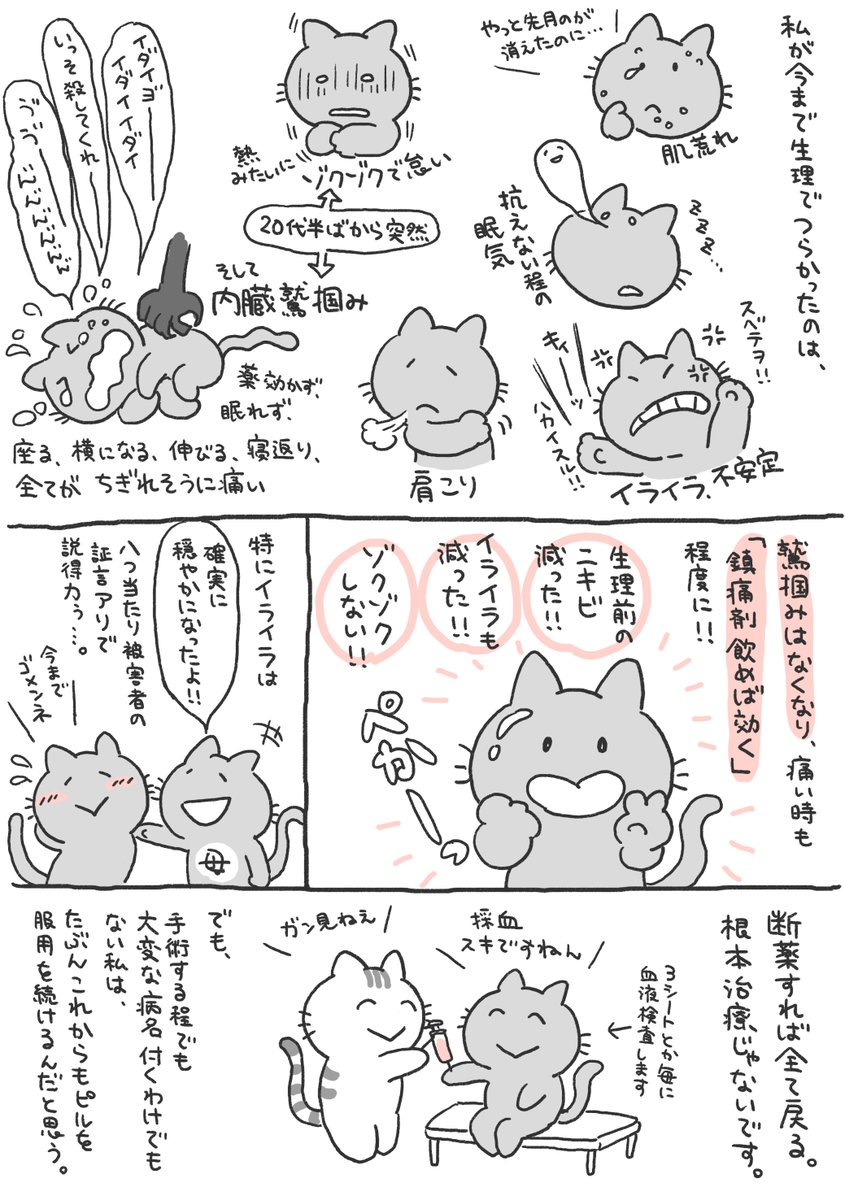 私が今まで生理でつらかったのは、
やっと先月のが
消えたのに…
肌荒れ
抗えない程の
眠気
zzz…
スベテヲ!!
キィーーッ
ハカイスル!!
イライラ、不安定
熱
みたいに
ゾクゾクで怠い
20代半ばから突然
そして
内臓鷲掴み
肩こり
イダイヨーー
イダイイダイ
いっそ殺してくれーー
ゔゔーーんんんんん
薬効かず、
眠れず、
座る、横になる、伸びる、寝返り、
全てが ちぎれそうに痛い
鷲掴みはなくなり、痛い時も
「鎮痛剤 飲めば効く」
程度に!!
生理前の
ニキビ
減った!!
イライラも
減った!!
ゾクゾク
しない!!
ぺかーーっ
特にイライラは
確実に
穏やかになったよ!!
八つ当たり被害者の
証言アリで
説得力ぅ…。
今まで
ゴメンネ
母
断薬すれば全て戻る。
根本治療じゃないです。
3シートとか毎に
血液検査します
採血
スキですねん
ガン見ねぇ
でも、
手術する程でも
大変な病名付くわけでも
ない私は、
たぶんこれからもピルを
服用を続けるんだと思う。